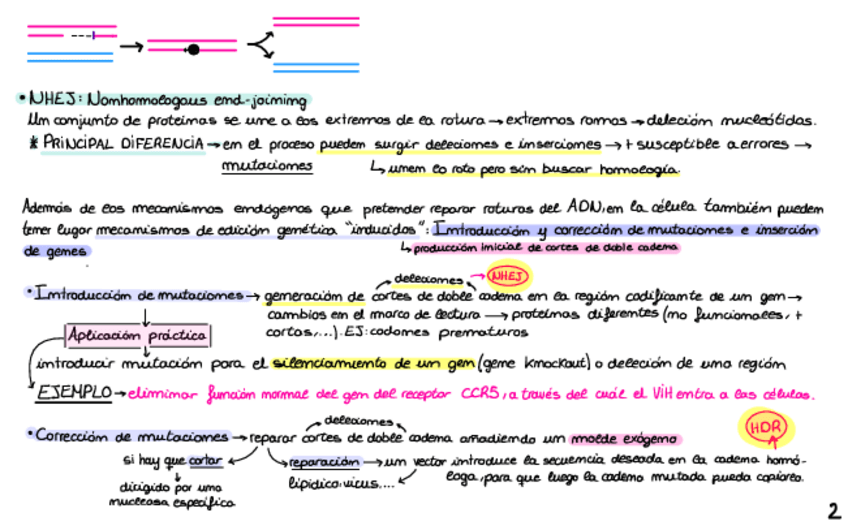 • NHEJ: Nonhomologous end-joining
Un conjunto de proteínas se une a los extremos de la rotura → extremos romos → deleción nucleótidos.
* PRINCIPAL DIFERENCIA → en el proceso pueden surgir deleciones e inserciones → + susceptible a errores →
mutaciones ↳ unen lo roto pero sin buscar homología.
Además de los mecanismos endógenos que pretender reparar roturas del ADN, en la célula también pueden
tener lugar mecanismos de edición genética "inducidos": Introducción y corrección de mutaciones e inserción
de genes ↳ producción inicial de cortes de doble cadena
deleciones → NHEJ
• Introducción de mutaciones → generación de cortes de doble cadena en la región codificante de un gen →
cambios en el marco de lectura → proteínas diferentes (no funcionales, +
cortas,...). EJ: codones prematuros
Aplicación práctica
introducir mutación para el silenciamiento de un gen (gene knockout) o deleción de una región
EJEMPLO → eliminar función normal del gen del receptor CCR5, a través del cuál el VIH entra a las células.
deleciones
HDR
• Corrección de mutaciones → reparar cortes de doble cadena añadiendo un molde exógeno
si hay que cortar reparación → un vector introduce la secuencia deseada en la cadena homó-
lipídico, virus,... loga, para que luego la cadena mutada pueda copiarla.
dirigido por una
nucleasa específica
2